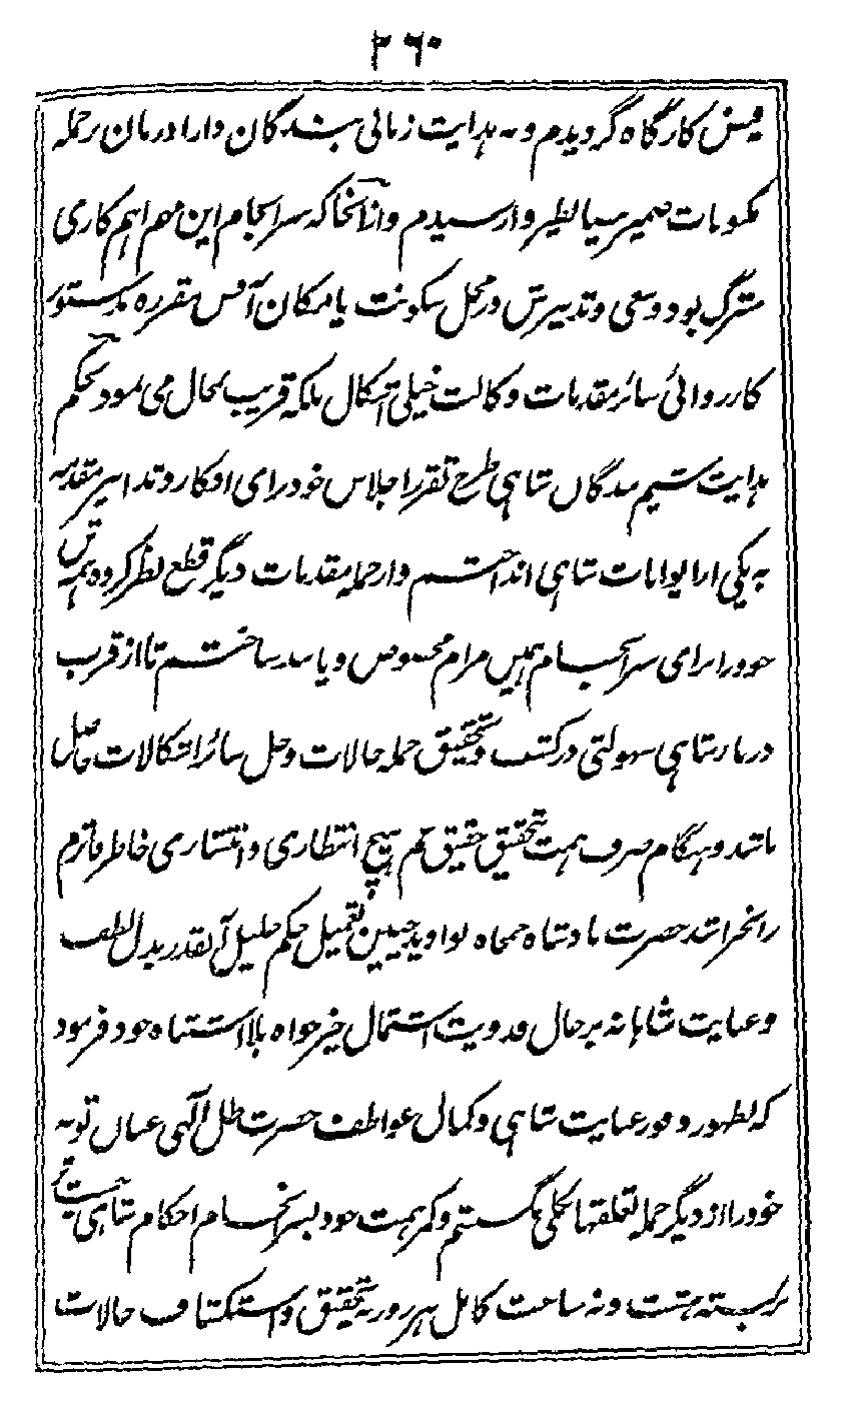 ۲۶۰
فیض کارگاه گردیدم و به هدایت زمانی بندگان دارا دربان بر جمله
مکنونات ضمیر وارسیدم و از آنجا که سرانجام این مهم اهم کاری
سترگ بود و سعی و تدبیرش در محل سکونت یا مکان آفس مقرره
کارروائی سائر مقدمات وکالت خیلی اشکال بلکه قریب محال می نمود بحکم
هدایت بندگان شاهی طرح تقرر اجلاس خود برای افکار و تدابیر مقدمه
به یکی از ایوانات شاهی انداختم و از جمله مقدمات دیگر قطع نظر کرده
خود را برای سرانجام همین مرام مخصوص و پابند ساختم تا از قرب
دربار شاهی سهولتی در کشف و تحقیق جمله حالات و حل سائر اشکالات حاصل
باشد و هنگام صرف همت تحقیق حقیق هیچ انتظاری و انتشاری خاطر
را نخراشد حضرت بادشاه جمجاه تعمیل حکم جلیل آنقدر بذل لطف
و عنایت شاهانه بر حال فدویت اشتمال خیرخواه بلا اشتباه خود فرمود
که بظهور وفور عنایت شاهی و کمال عواطف حضرت ظل الٰهی عنان توجه
خود را از دیگر جمله تعلقها بکلی گسستم و کمر همت خود بسرانجام احکام شاهی
بر بسته کامل هر روز به تحقیق و استکشاف حالات